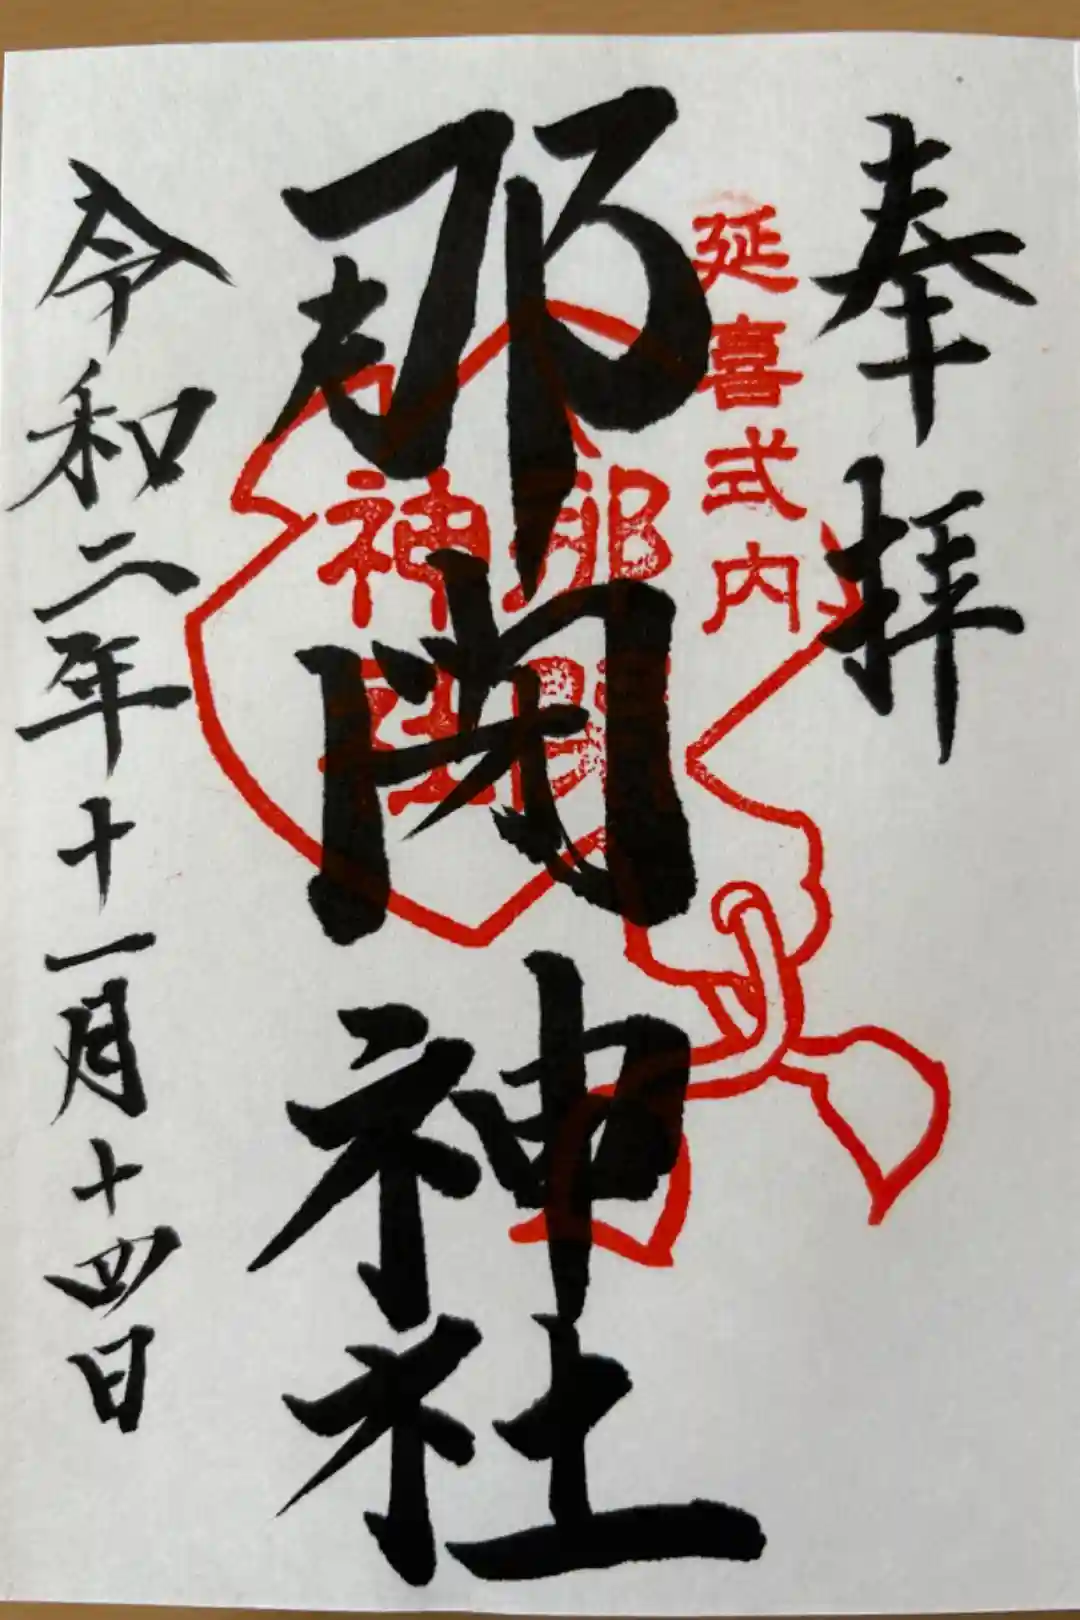 奉拝
延喜式内
那閉神社
那閉
神社
令和二年十一月十四日